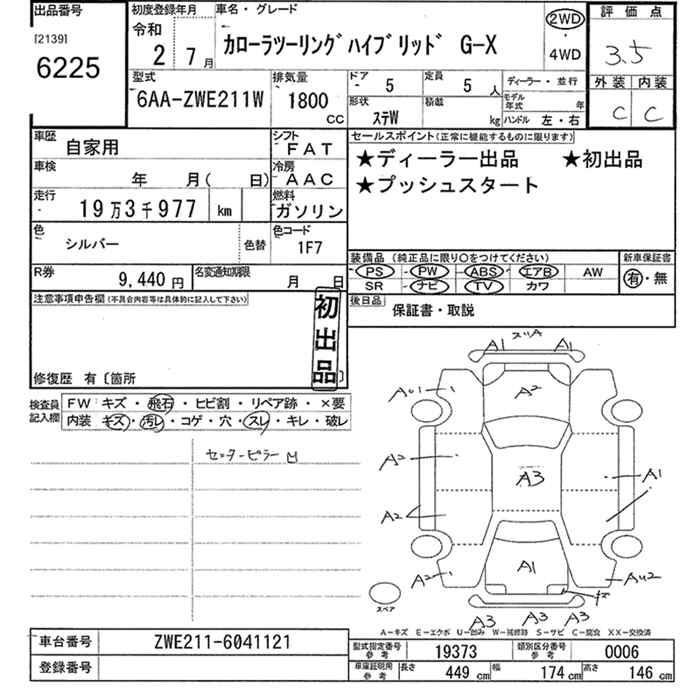 出品番号
[2139]
6225
初度登録年月
令和
2 年 7 月
車名・グレード
カローラツーリングハイブリッド G-X
2WD
・
4WD
評価点
3.5
外装 内装
C C
型式
6AA-ZWE211W
排気量
1800 CC
ドア
5
定員
5 人
形状
ステW
積載
kg
ディーラー・並行
モデル年式 年
ハンドル 左・右
車歴
自家用
シフト
FAT
車検
年 月( 日)
冷房
AAC
走行
19万3千977 km
燃料
ガソリン
色
シルバー
色替
色コード
1F7
R券
9,440 円
名変通知期限
月 日
セールスポイント(正常に機能するものに限ります)
★ディーラー出品 ★初出品
★プッシュスタート
装備品 (純正品に限り○をつけてください)
PS PW ABS エアB AW
SR ナビ TV カワ
新車保証書
有・無
後日品
保証書・取説
注意事項申告欄(不具合内容等は具体的に記入して下さい)
初出品
修復歴 有〔箇所 〕
検査員記入欄
FW: キズ・飛石・ヒビ割・リペア跡・×要
内装 キズ・汚レ・コゲ・穴・スレ・キレ・破レ
センターピラー
A1 A1
A2
A2
A3
A1
A2
A2
A1
AU2
A3 A3 A3
スペア
A-キズ E-エクボ U-凹み W-補修跡 S-サビ C-腐食 XX-交換済
車台番号
ZWE211-6041121
登録番号
型式指定番号 参考
19373
類別区分番号 参考
0006
車庫証明用 参考
長さ 449 cm 幅 174 cm 高さ 146 cm